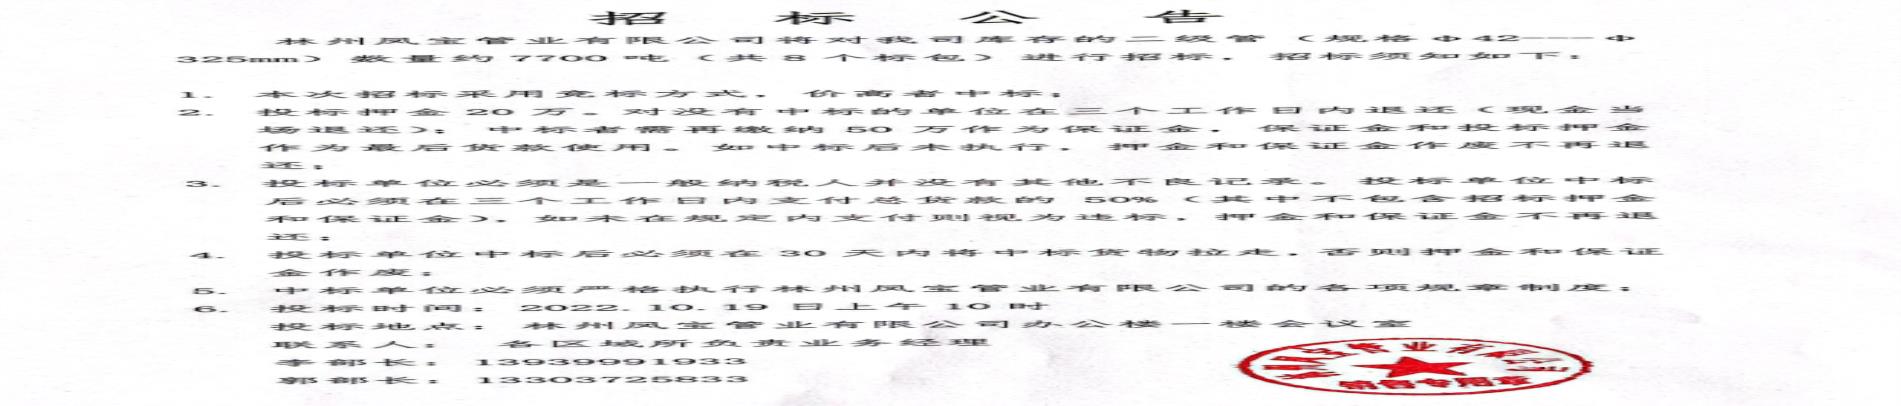 招标公告
林州凤宝管业有限公司将对我司库存的二级管（规格Φ42---Φ
325mm）数量约7700吨（共8个标包）进行招标，招标须知如下：
1. 本次招标采用竞标方式，价高者中标；
2. 投标押金20万。对没有中标的单位在三个工作日内退还（现金当
场退还）；中标者需再缴纳50万作为保证金，保证金和投标押金
作为最后货款使用。如中标后未执行，押金和保证金作废不再退
还；
3. 投标单位必须是一般纳税人并没有其他不良记录。投标单位中标
后必须在三个工作日内支付总货款的50%（其中不包含招标押金
和保证金），如未在规定内支付则视为违标，押金和保证金不再退
还；
4. 投标单位中标后必须在30天内将中标货物拉走，否则押金和保证
金作废；
5. 中标单位必须严格执行林州凤宝管业有限公司的各项规章制度；
6. 投标时间：2022.10.19日上午10时
投标地点：林州凤宝管业有限公司办公楼一楼会议室
联系人：各区域所负责业务经理
李部长：13939991933
郭部长：13303725833
林州凤宝管业有限公司
销售专用章